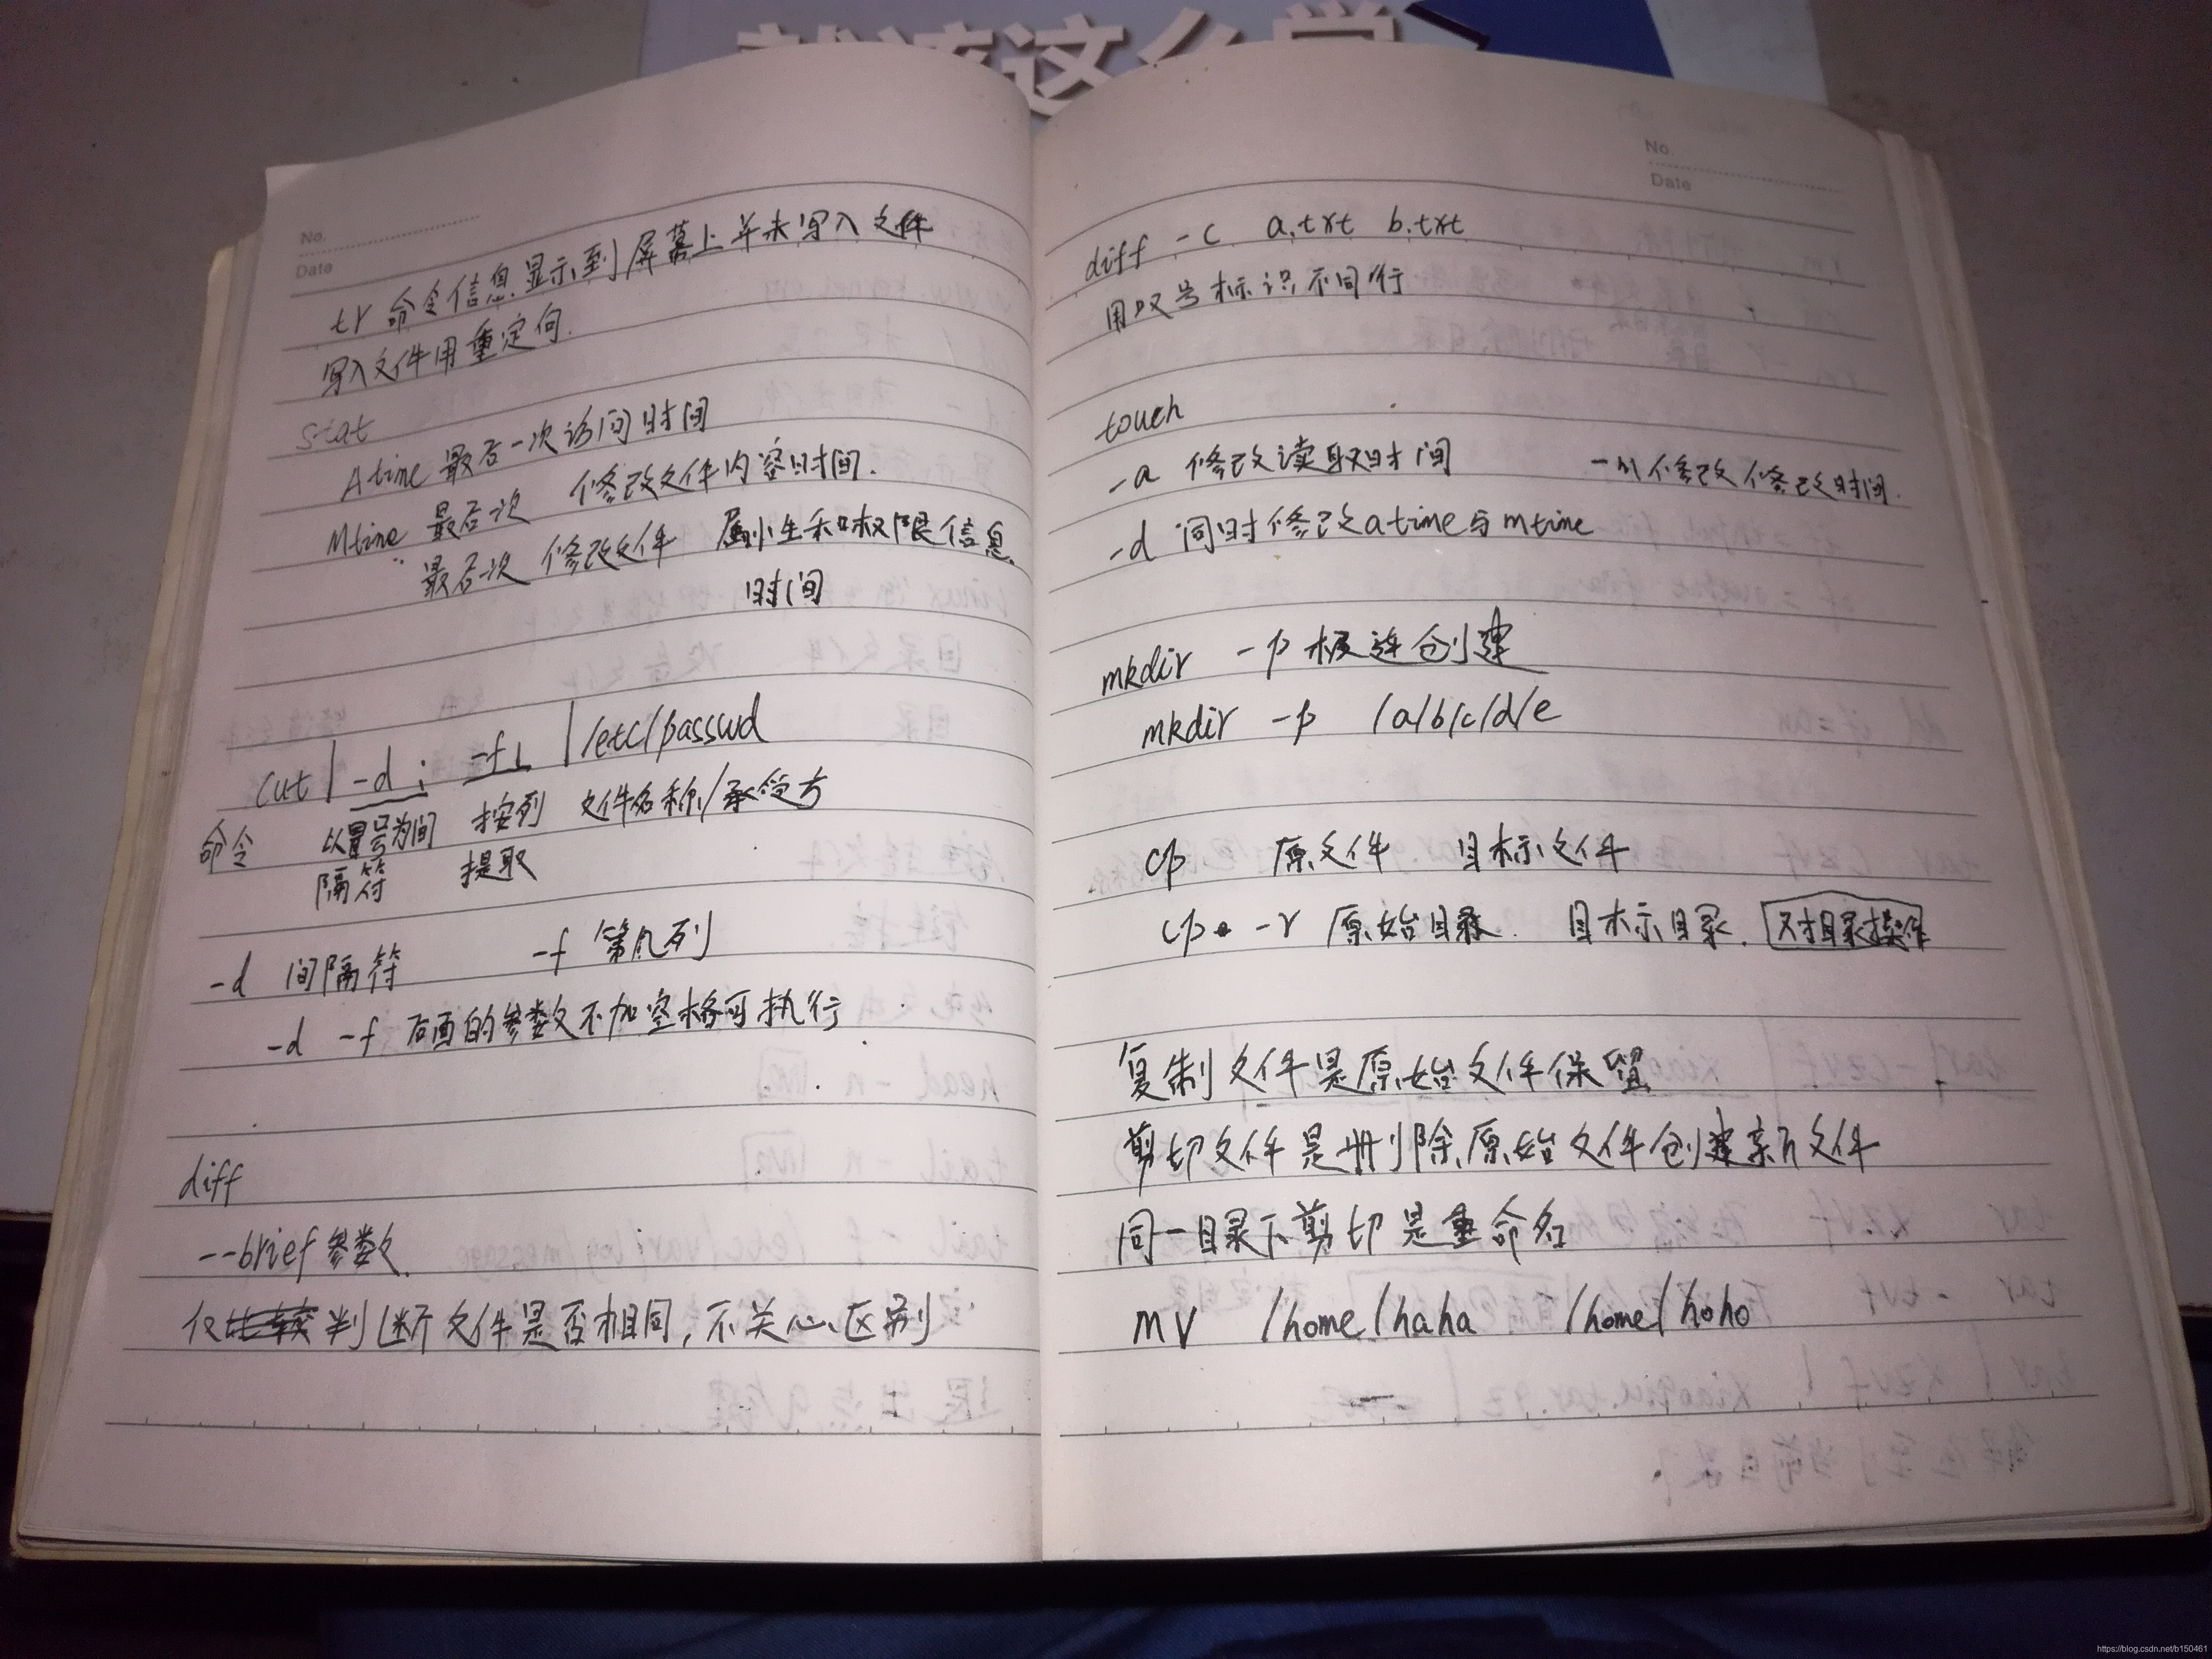 就该这么学
No.
Date
tr 命令信息显示到屏幕上并未写入文件
写入文件用重定向.
stat
Atime 最后一次访问时间
Mtime 最后一次 修改文件内容时间.
最后一次 修改文件 属性和权限信息
时间
cut | -d : -f1 | /etc/passwd
命令 以冒号为间 按列 文件名称/承受方
隔符 提取
-d 间隔符 -f 第几列
-d -f 后面的参数不加空格可执行
diff
--brief 参数
仅判断文件是否相同,不关心区别
No.
Date
diff -c a.txt b.txt
用叹号标识不同行
touch
-a 修改读取时间 -m 修改修改时间.
-d 同时修改atime与mtime
mkdir -p 极连创建
mkdir -p /a/b/c/d/e
cp 原文件 目标文件
cp -r 原始目录. 目标目录. 对目录操作
复制文件是原始文件保留
剪切文件是删除原始文件创建新文件
同一目录下剪切是重命名
mv /home/haha /home/hoho
https://blog.csdn.net/b150461